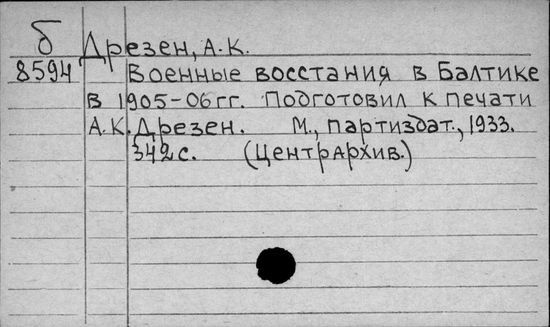 б Дрезен, А.К.
8594 Военные восстания в Балтике
в 1905-06 гг. Подготовил к печати
А.К. Дрезен. М., партиздат., 1933.
342 с. (Центрархив.)